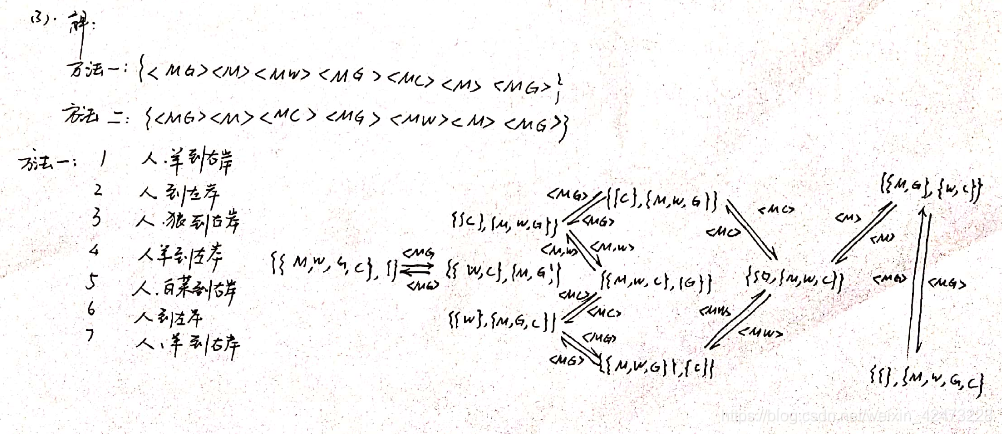 (3). 解:
方法一: {<MG><M><MW><MG><MC><M><MG>}
方法二: {<MG><M><MC><MG><MW><M><MG>}
方法一: 1 人.羊到右岸
2 人到左岸
3 人.狼到右岸
4 人羊到左岸
5 人.白菜到右岸
6 人到左岸
7 人、羊到右岸
{{M,W,G,C},{}}
<MG
<MG>
{{W,C},{M,G}}
{{C},{M,W,G}}
<MG>
<MG>
{{C},{M,W,G}}
<M,W>
<M,W>
{{M,W,C},{G}}
<MC>
<MC>
{{W},{M,G,C}}
<MG>
<MG>
{{M,W,G}},{C}}
<MC>
<MC>
<MW>
<MW>
{{G},{M,W,C}}
<M>
<M>
{{M,G},{W,C}}
<MG>
<MG>
{{},{M,W,G,C}